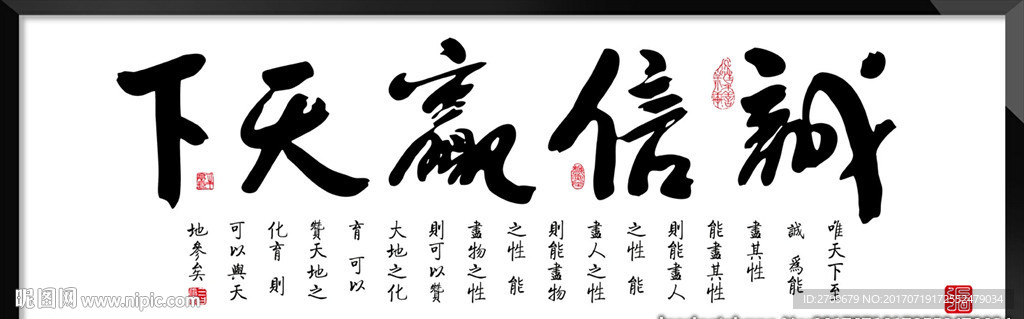 誠信贏天下
唯天下至
誠 爲能
盡其性
能盡其性
則能盡人
之性 能
盡人之性
則能盡物
之性 能
盡物之性
則可以贊
大地之化
育 可以
贊天地之
化育 則
可以與天
地參矣
昵图网 www.nipic.com
NO:20170719172552479034